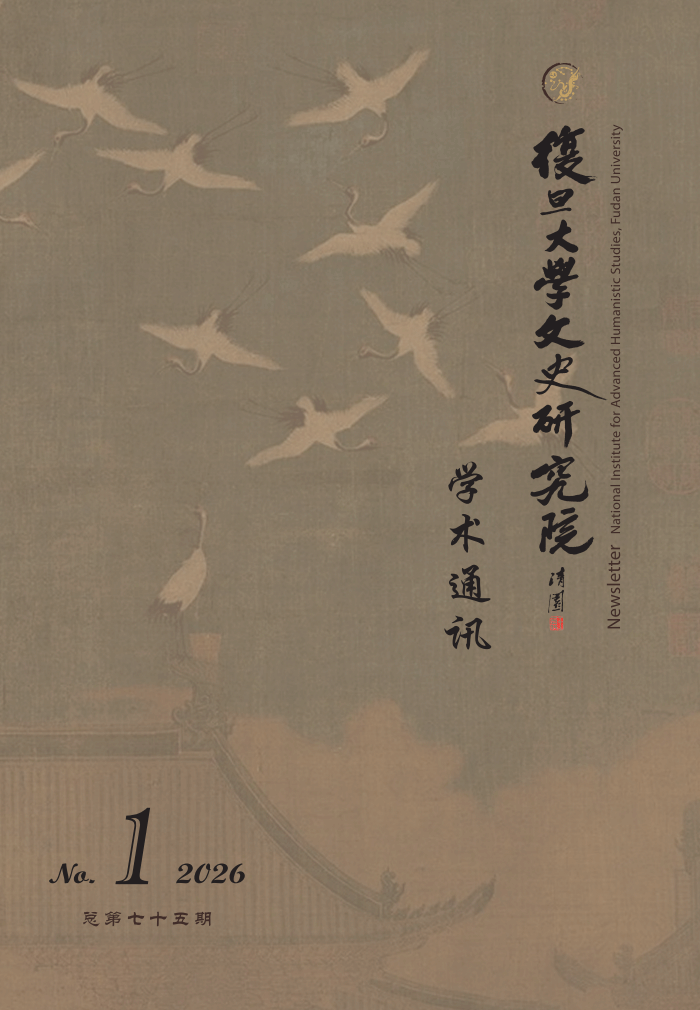 復旦大學文史研究院
清園
Newsletter National Institute for Advanced Humanistic Studies, Fudan University
学术通讯
No. 1 2026
总第七十五期